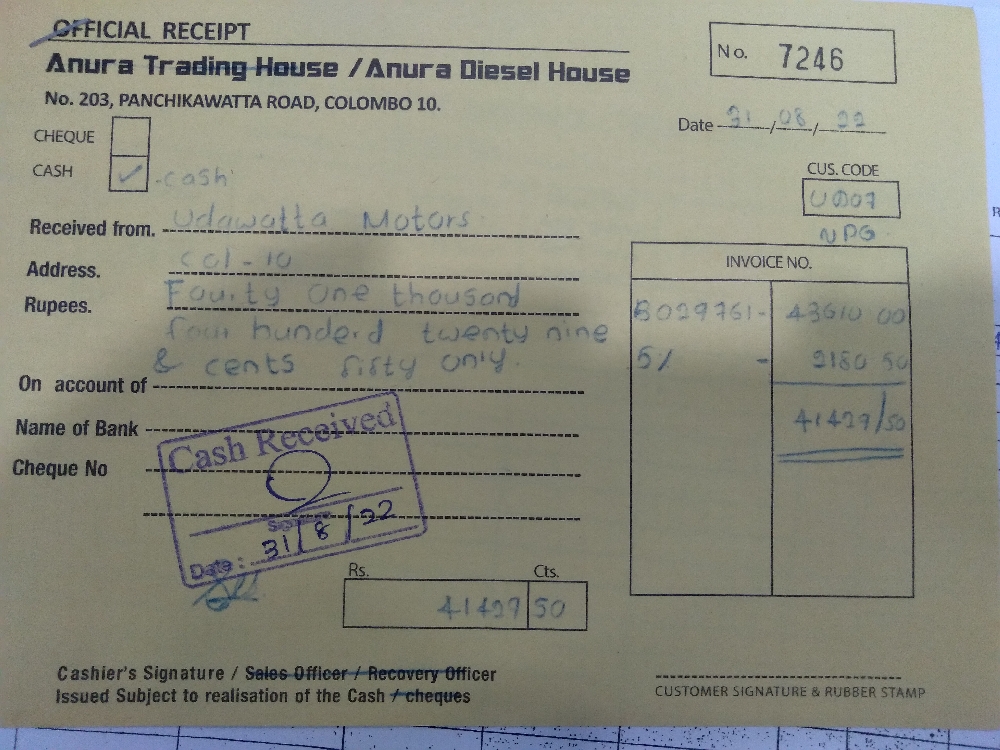 OFFICIAL RECEIPT
No. 7246
Anura Trading House / Anura Diesel House
No. 203, PANCHIKAWATTA ROAD, COLOMBO 10.
Date 31/08/22
CHEQUE
CASH ✓ - cash
CUS. CODE
UD07
NPG
Received from. Udawatta Motors
Address. Col - 10
Rupees. Fourty One thousand
four hunderd twenty nine
& cents fifty only.
On account of
Name of Bank
Cheque No
INVOICE NO.
B029761- 43610 00
5% - 2180 50
41429/50
Cash Received
Signature
Date: 31/8/22
Rs. Cts.
41429 50
Cashier's Signature / Sales Officer / Recovery Officer
Issued Subject to realisation of the Cash / cheques
CUSTOMER SIGNATURE & RUBBER STAMP